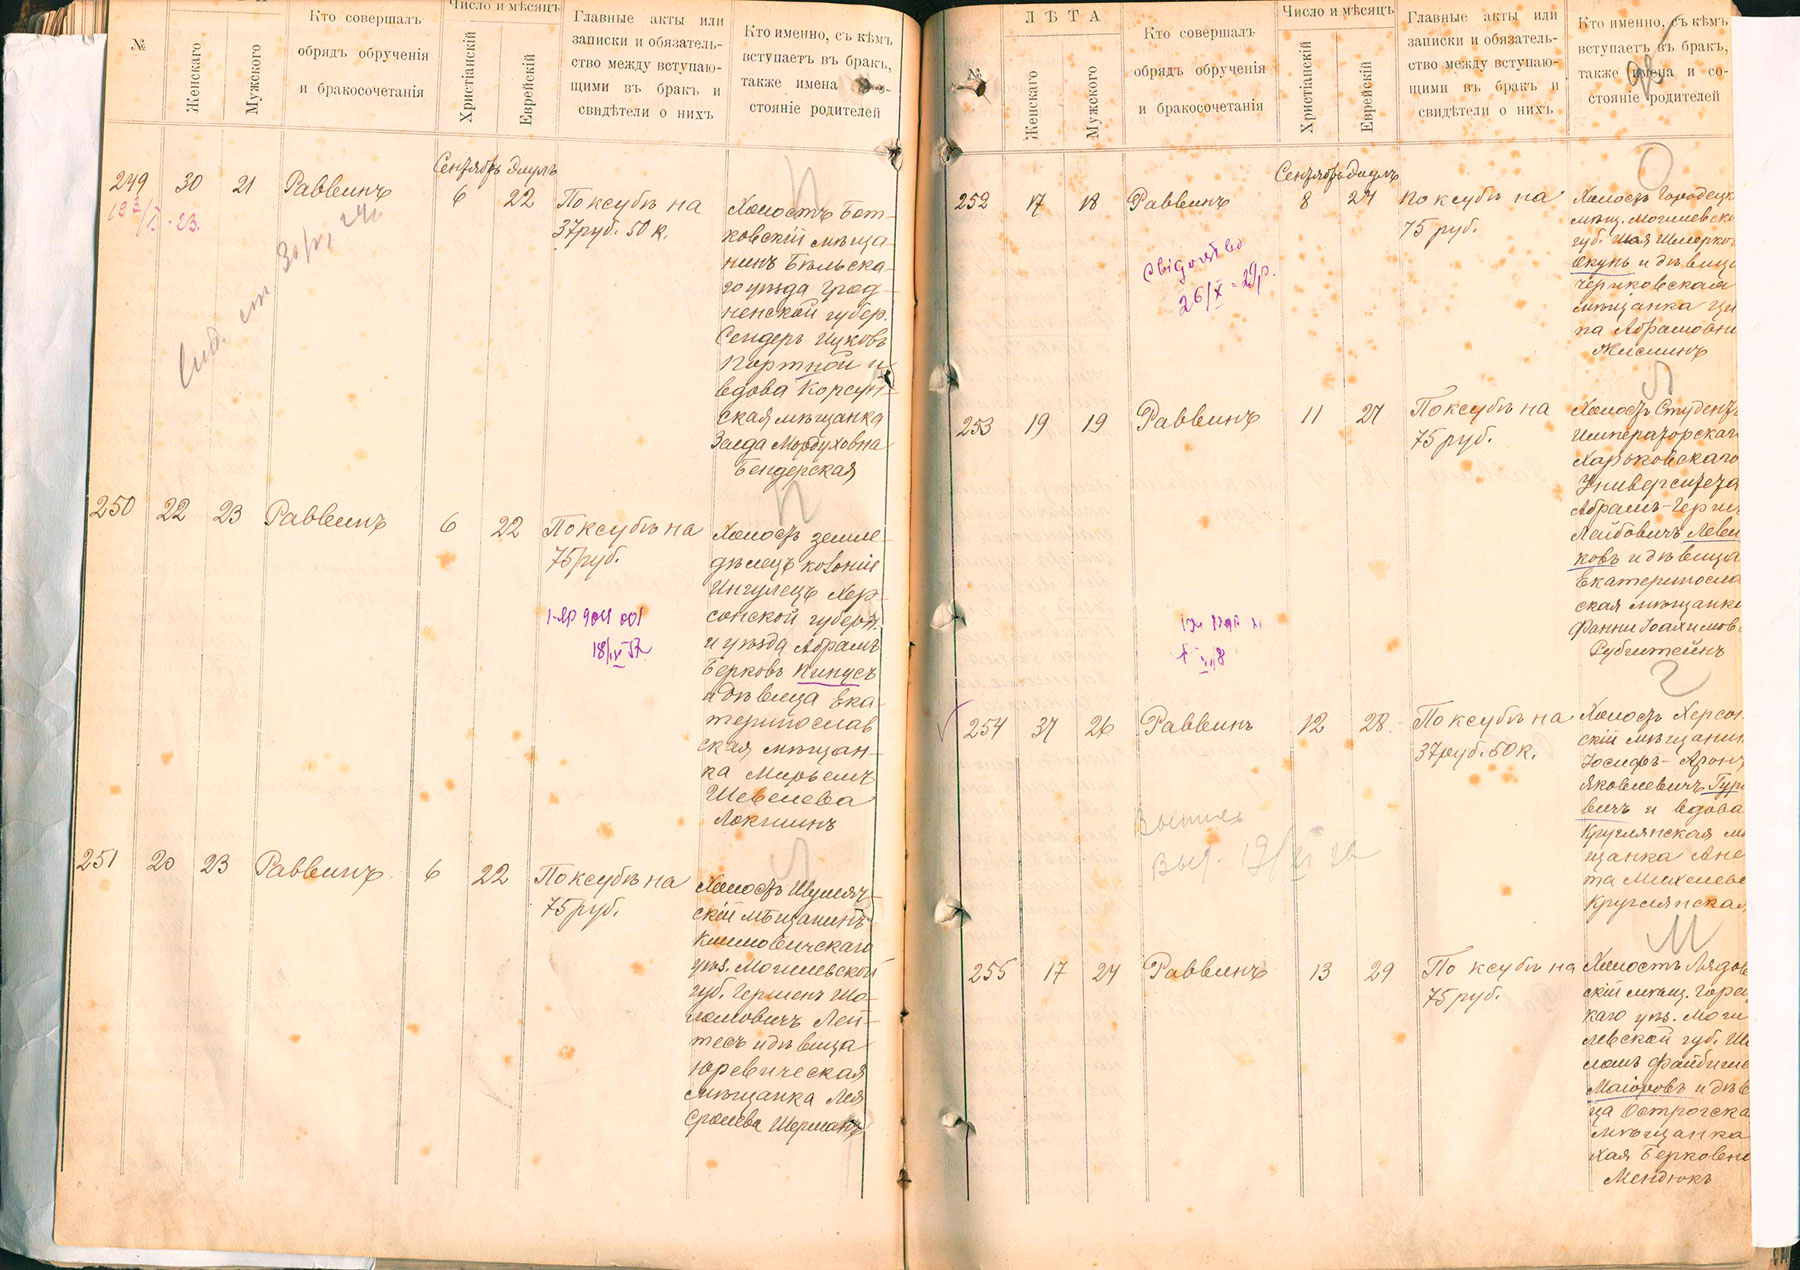 №
Женскаго
Мужского
Кто совершалъ
обрядъ обрученія
и бракосочетанія
Число и мѣсяцъ
Христіанскій
Еврейскій
Главные акты или
записки и обязатель-
ство между вступаю-
щими въ бракъ и
свидѣтели о нихъ
Кто именно, съ кѣмъ
вступаетъ въ бракъ,
также имена
стояніе родителей
Сентябрь Элулъ
249 30 21 Раввинъ 6 22 По ксубѣ на
37 руб. 50 к.
Холостъ Бот-
ковскій мѣща-
нинъ Бѣльска-
го уѣзда Грод-
ненской губер.
Сендеръ Ицковъ
Портной и
вдова Корсун-
ская мѣщанка
Зелда Мордуховна
Бендерская
250 22 23 Раввинъ 6 22 По ксубѣ на
75 руб.
Холостъ земле-
дѣлецъ колоніи
Ингулецъ Хер-
сонской губерн.
и уѣзда Абрамъ
Берковъ
и дѣвица Ека-
теринослав
ская мѣщан-
ка Мирьемъ
Шевелева
Локшинъ
18/IV
251 20 23 Раввинъ 6 22 По ксубѣ на
75 руб.
Холостъ Шумяч-
скій мѣщанинъ
Климовичскаго
уѣз. Могилевской
губ. Гершенъ Шо-
ломовичъ Лей-
тесъ и дѣвица
Юревическая
мѣщанка Лея
Сролева Шерманъ
№
ЛѢТА
Женскаго
Мужского
Кто совершалъ
обрядъ обрученія
и бракосочетанія
Число и мѣсяцъ
Христіанскій
Еврейскій
Главные акты или
записки и обязатель-
ство между вступаю-
щими въ бракъ и
свидѣтели о нихъ
Кто именно, съ кѣмъ
вступаетъ въ бракъ,
также имена и со-
стояніе родителей
Сентябрь Элулъ
252 17 18 Раввинъ 8 24 По ксубѣ на
75 руб.
О
Холостъ Городецк
мѣщ. Могилевско
губ. Шая Шмерко
Окунь и дѣвица
Чериковская
мѣщанка Ци
па Абрамовна
Жислинъ
26/X
253 19 19 Раввинъ 11 27 По ксубѣ на
75 руб.
Л
Холостъ Студентъ
Императорскаго
Харьковскаго
Университета
Абрамъ-Герш
Лейбовичъ Левен
ковъ и дѣвица
Екатериносла
ская мѣщанка
Фанни Іоахимов
Рубштейнъ
254 37 26 Раввинъ 12 28 По ксубѣ на
37 руб. 50 к.
Г
Холостъ Херсон
скій мѣщанин
Іосифъ-Аронъ
Яковлевичъ Гур
вичъ и вдова
Круглянская мѣ
щанка Ане
та Михелева
Круглянская
255 17 24 Раввинъ 13 29 По ксубѣ на
75 руб.
М
Холостъ Лядов
скій мѣщ. Горец
каго уѣз. Моги
левской губ. Шо
ломъ Файбише
Маіоровъ и дѣв
ца Острогска
мѣщанка
Хая Берковна
Мендюкъ